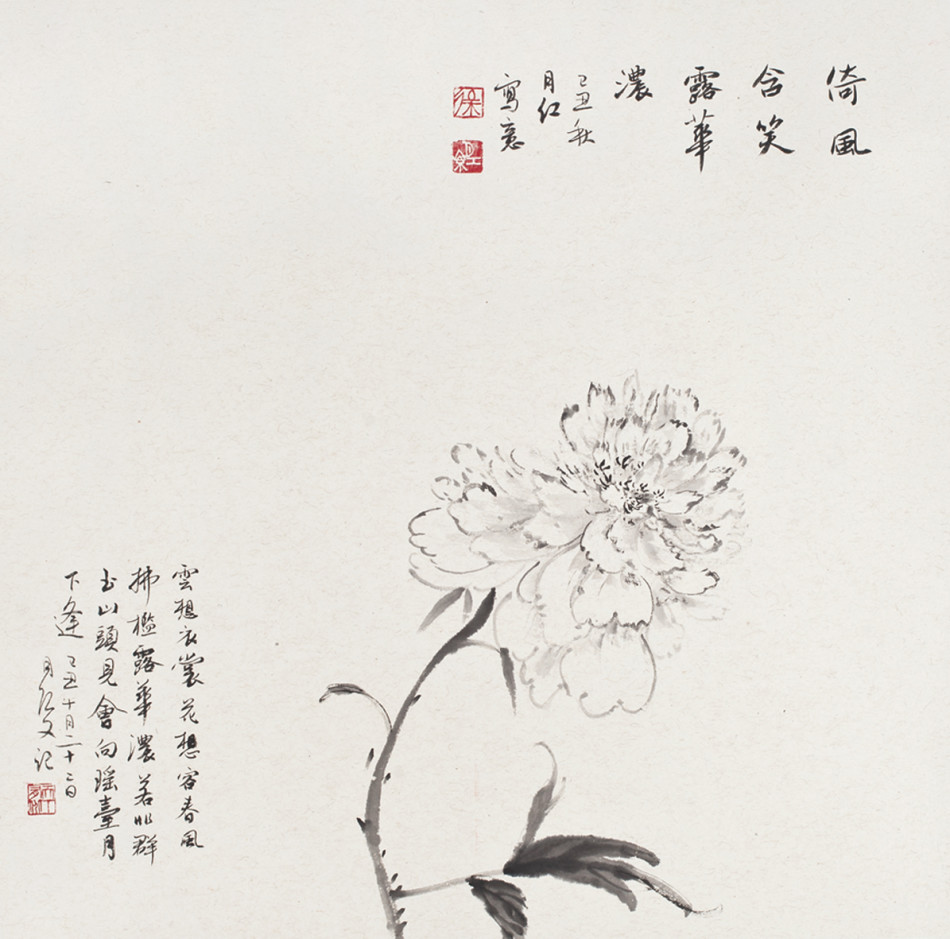 倚風
含笑
露華
濃
己丑秋
月红
寫意
徐
雲想衣裳花想容春風
拂檻露華濃若非群
玉山頭見會向瑶臺月
下逢
己丑十月二十二日
月红又记